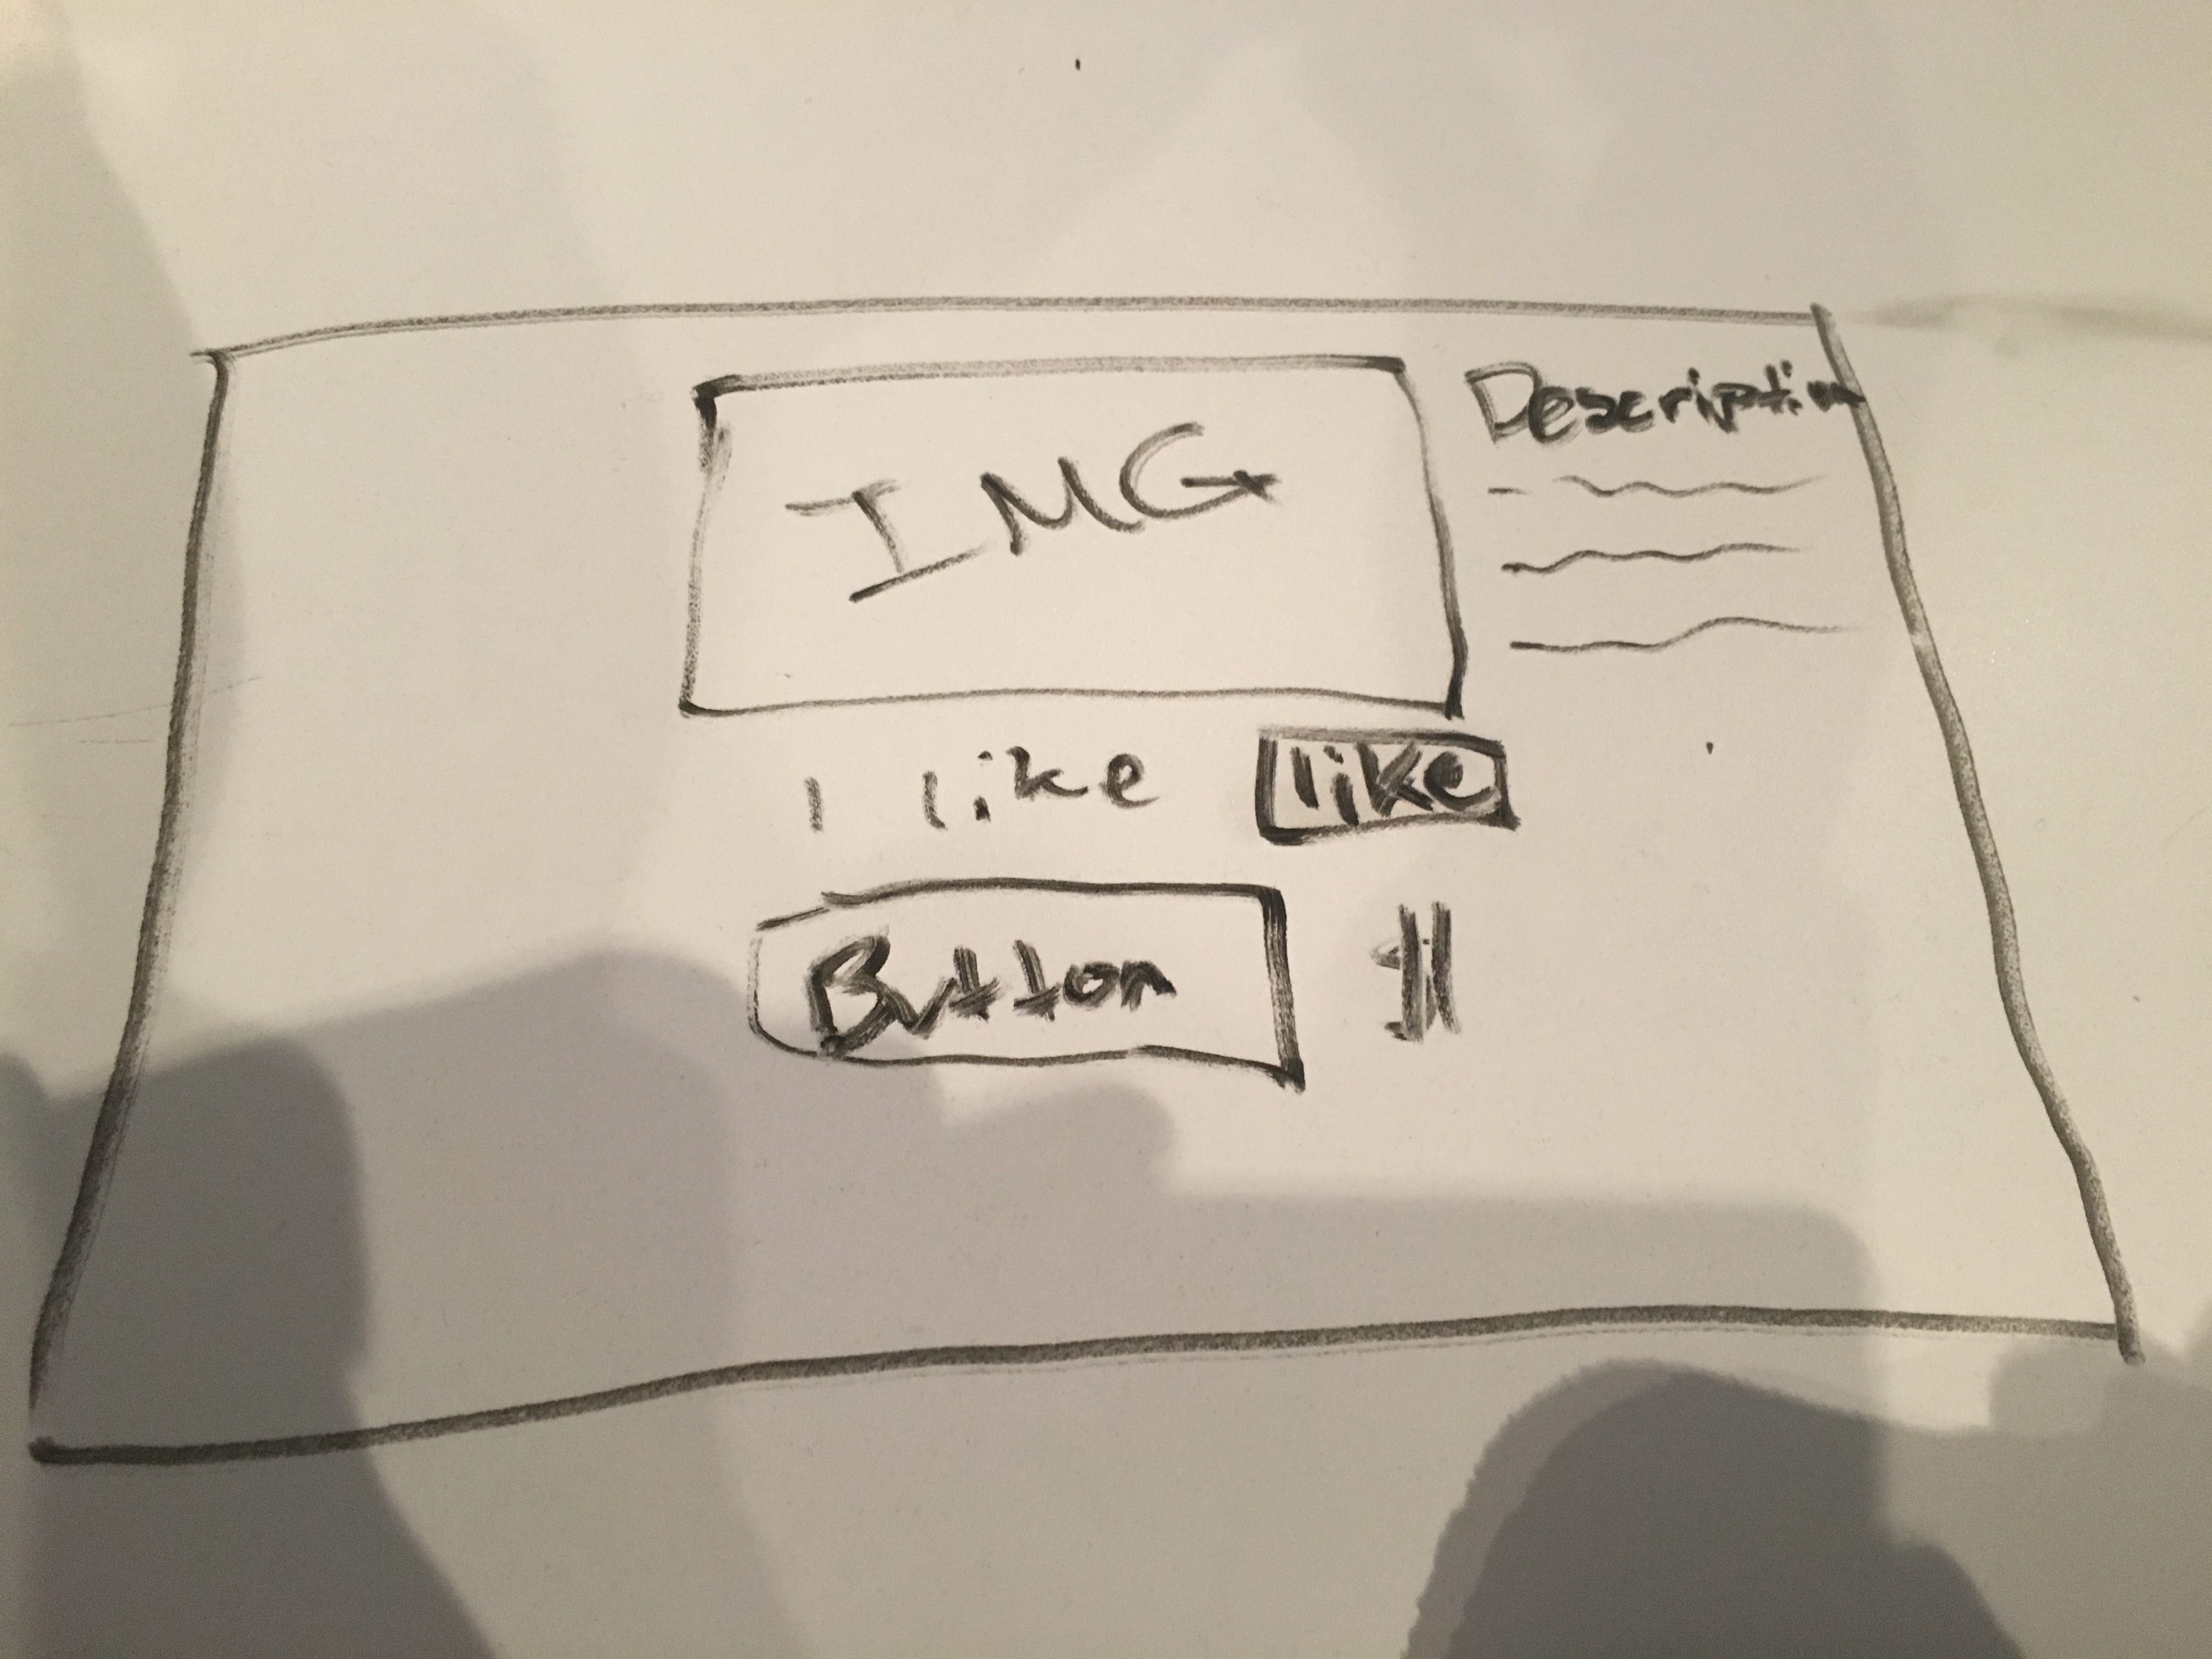 IMG
Description
1 like like
Button